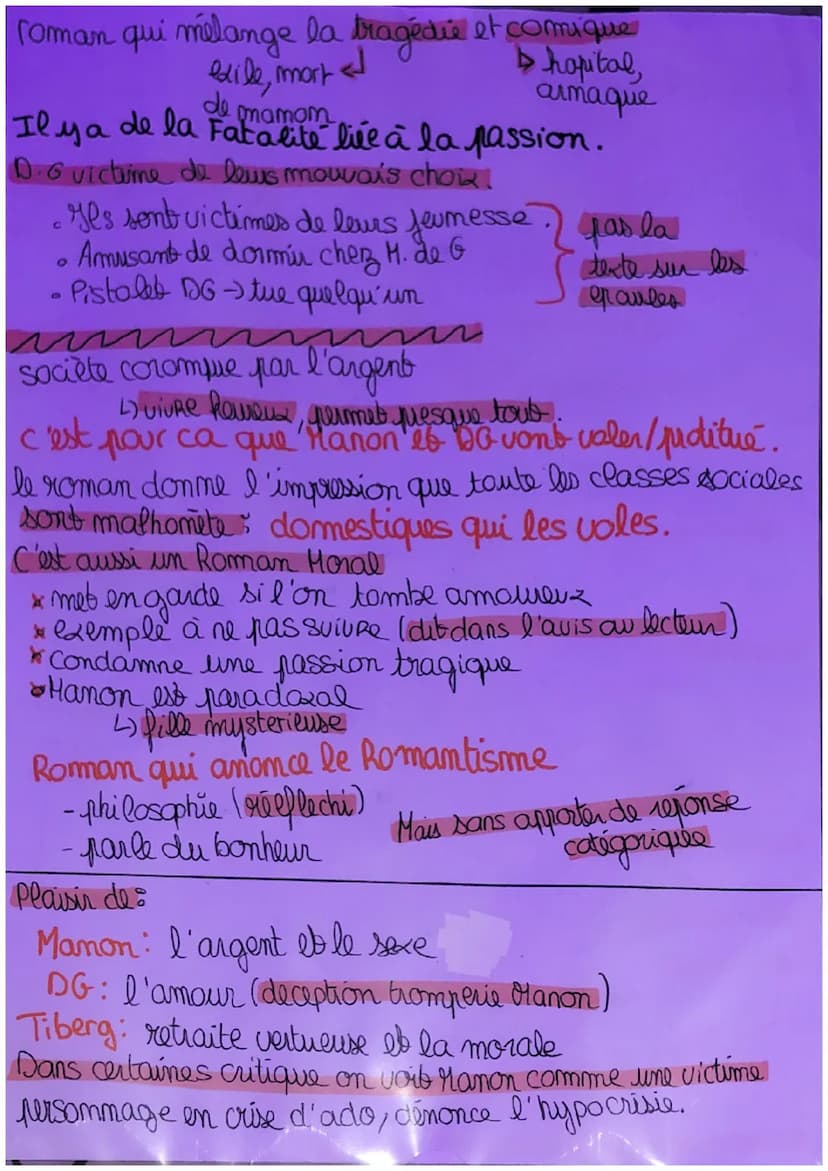 roman qui mélange la tragédie et comique
exile, mort de manon
hopital, arnaque
Il y a de la Fatalité liée à la passion.
D.G victime de leurs mauvais choix.
. Ils sont victimes de leurs jeunesse.
. Amusant de dormir chez M. de G
. Pistolet DG → tue quelqu'un
pas la
texte sur les
epaules
société corompue par l'argent
↳ vivre heureux, permet presque tout.
c'est pour ca que Manon et DG vont voler/puditué.
le roman donne l'impression que toute les classes sociales
sont malhonnête : domestiques qui les voles.
C'est aussi un Roman Moral
x met en garde si l'on tombe amoureux
x exemple à ne pas suivre (dit dans l'avis au lecteur)
x Condamne une passion tragique
Manon est paradoxal
↳ fille mysterieuse
Roman qui anonce le Romantisme
- philosophie (réeflechi)
- parle du bonheur
Mais sans apporter de réponse
catégorique
Plaisir de :
Manon : l'argent et le sexe
DG : l'amour (deception tromperie Manon)
Tiberg : retraite vertueuse et la morale
Dans certaines critique on voit Manon comme une victime
personnage en crise d'ado, dénonce l'hypocrisie.